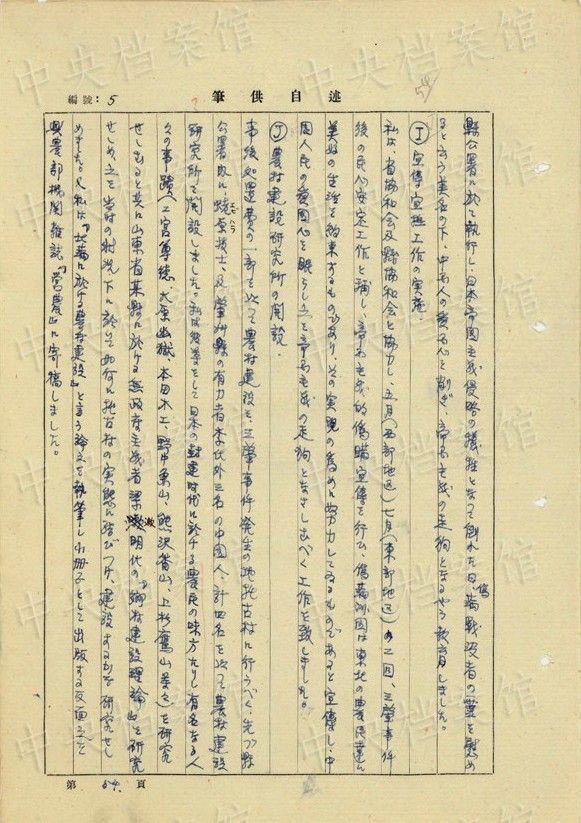 編號：5
筆供自述
縣公署に於て執行し、日本帝国主義侵略の犠牲となって倒れた日偽満戦没者の霊を慰め
ると云う美名の下、中国人の愛国心を削ぎ、帝国主義の走狗となるやう教育しました。
Ⓘ 宣傳宣撫工作の実施。
私は、省協和会及縣協和会と協力し、五月（西部地区）七月（東部地区）の二回、三肇事件
後の民心安定工作と称し、帝国主義的偽瞞宣傳を行ひ、偽満洲国は東北の農民達に
美好の生活を約束するものであり、その実現の為めに努力してゐるものであると宣傳し、中
国人民の愛国心を眠らし、之を帝国主義の走狗となさしむべく工作を致しました。
Ⓙ 農村建設研究所の開設。
事後処理費の一部を以って農村建設を、三肇事件発生の地托古村に行うべく、先づ縣
公署内に、蛯原技士、及肇州縣の有力者 代外二名の中国人、計四名を以って農村建設
エビハラ
研究所を開設しました。私は参事として日本の封建時代に於ける農民の味方たりし有名なる人
々の事蹟（二宮尊徳、大原幽学、本田木工、野中兼山、熊沢蕃山、上杉鷹山等々）を研究
せしむると共に山東省某縣に於ける無政府主義者梁漱明代の『郷村建設理論』を研究
せしめ、之を当時の状況下に於いて如何に托古村の実態に結びつけ、建設するかを研究せし
めました。又私は『北満に於ける農村建設』と言う論文を執筆し小冊子として出版する反面之を
興農部機関雑誌『営農』に寄稿しました。
第 54. 頁
中央档案馆